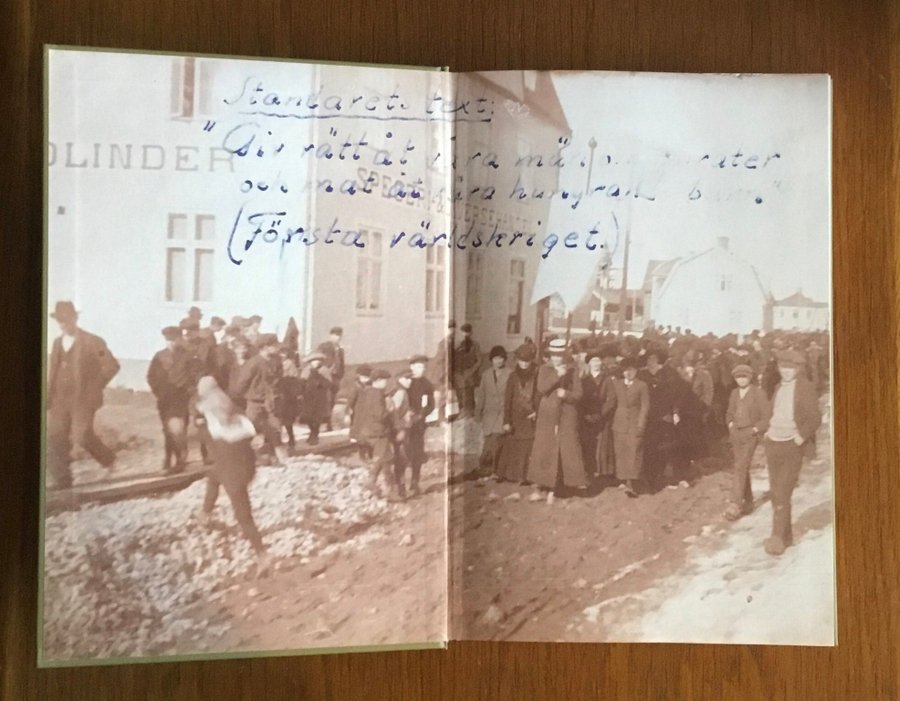 Standarets text:
"Giv rätt åt våra män
och mat åt våra hungrande barn."
(Första världskriget.)
OLINDER
SPECERI